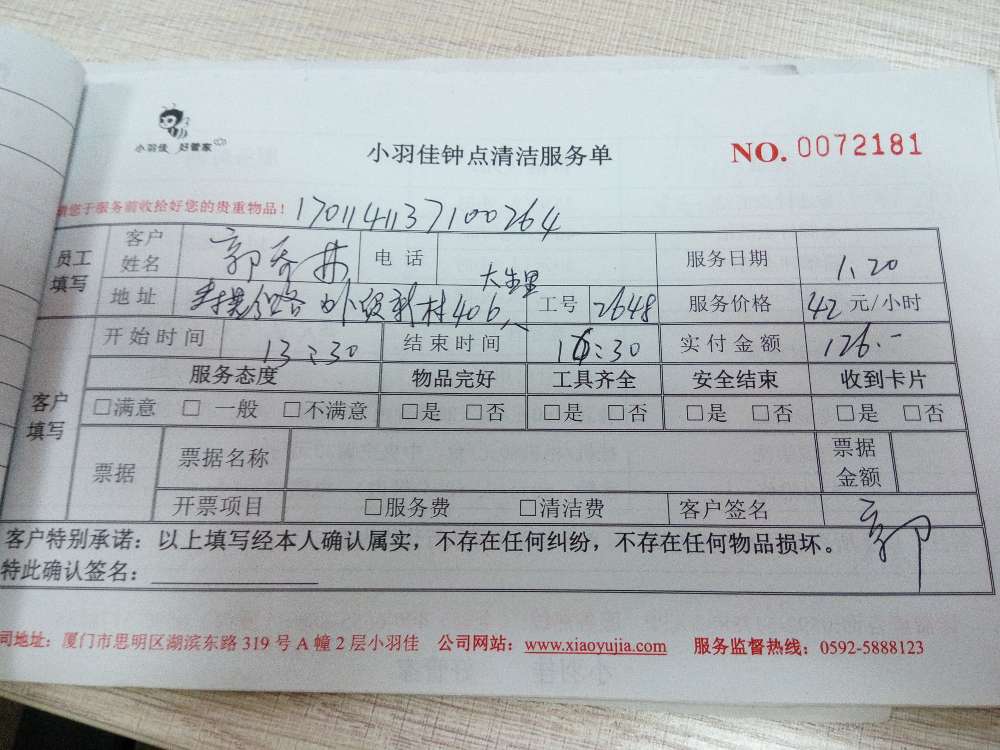 小羽佳 好管家
小羽佳钟点清洁服务单
NO. 0072181
请您于服务前收拾好您的贵重物品！ 1701141137100264
员工填写 客户姓名 郭 电话 服务日期 1.20
地址 406 大生里 工号 2648 服务价格 42 元/小时
开始时间 13:30 结束时间 16:30 实付金额 126.-
客户填写 服务态度 物品完好 工具齐全 安全结束 收到卡片
□满意 □一般 □不满意 □是 □否 □是 □否 □是 □否 □是 □否
票据 票据名称 票据金额
开票项目 □服务费 □清洁费 客户签名 郭
客户特别承诺：以上填写经本人确认属实，不存在任何纠纷，不存在任何物品损坏。
特此确认签名：
司地址：厦门市思明区湖滨东路 319 号 A 幢 2 层小羽佳 公司网站：www.xiaoyujia.com 服务监督热线：0592-5888123